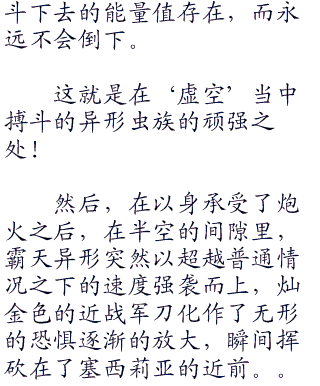 斗下去的能量值存在，而永
远不会倒下。
这就是在‘虚空’当中
搏斗的异形虫族的顽强之
处！
然后，在以身承受了炮
火之后，在半空的间隙里，
霸天异形突然以超越普通情
况之下的速度强袭而上，灿
金色的近战军刀化作了无形
的恐惧逐渐的放大，瞬间挥
砍在了塞西莉亚的近前。。